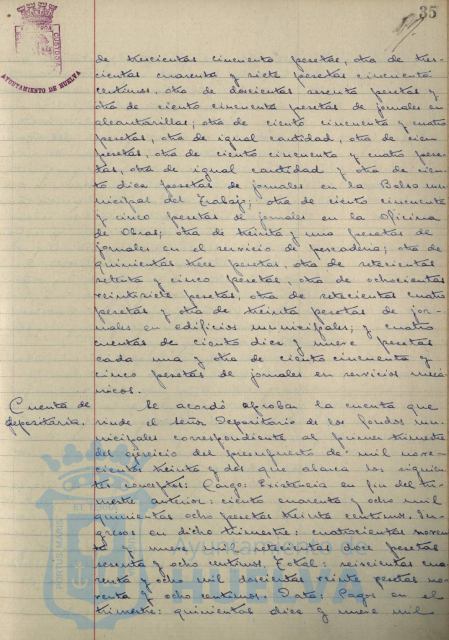 35
AYUNTAMIENTO DE HUELVA
de trescientas cincuenta pesetas, otra de tres-
cientas cuarenta y siete pesetas cincuenta
centimos, otra de doscientas sesenta pesetas y
otra de ciento cincuenta pesetas de jornales en
alcantarillas; otra de ciento cincuenta y cuatro
pesetas, otra de igual cantidad, otra de cien
pesetas, otra de ciento cincuenta y cuatro pese-
tas, otra de igual cantidad y otra de cien-
to diez pesetas de jornales en la Bolsa mu-
nicipal del Trabajo; otra de ciento cincuenta
y cinco pesetas de jornales en la oficina
de Obras; otra de treinta y una pesetas de
jornales en el servicio de pescaderia; otra de
quinientas trece pesetas, otra de setecientas
setenta y cinco pesetas, otra de ochocientas
veintisiete pesetas, otra de setecientas cuatro
pesetas y otra de treinta pesetas de jor-
nales en edificios municipales; y cuatro
cuentas de ciento diez y nueve pesetas
cada una y otra de ciento cincuenta y
cinco pesetas de jornales en servicios mecá-
nicos.
Cuenta de
depositaria.
Se acordó aprobar la cuenta que
rinde el Señor Depositario de los fondos mu-
nicipales correspondiente al primer trimestre
del ejercicio del presupuesto de mil nove-
cientos treinta y dos que abarca los siguien-
tes conceptos. Cargo: Existencia en fin del tri-
mestre anterior: ciento cuarenta y ocho mil
quinientas ocho pesetas treinta centimos. In-
gresos en dicho trimestre: cuatrocientas noven-
ta y nueve mil setecientas doce pesetas
sesenta y ocho centimos. Total: seiscientas cua-
renta y ocho mil doscientas veinte pesetas no-
venta y ocho centimos. Data: Pagos en el
trimestre: quinientas diez y nueve mil